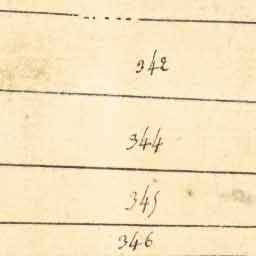 342
344
345
346